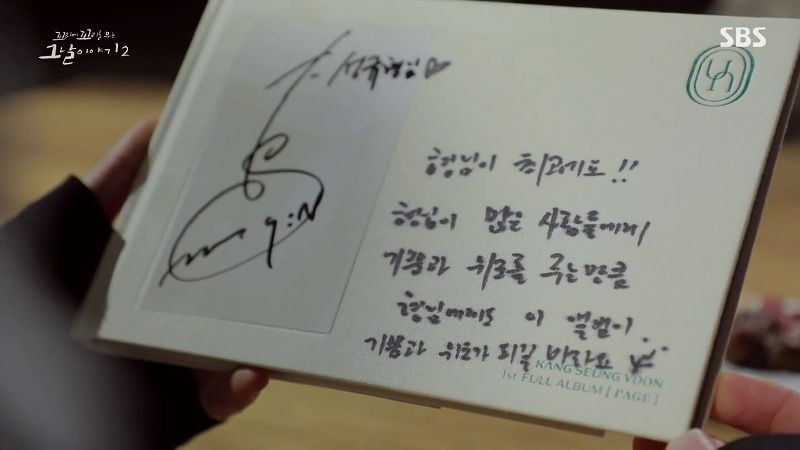 꼬리에 꼬리를 무는
그날 이야기 2
SBS
성규형님♡
형님이 최고에요!!
형님이 많은 사람들에게
기쁨과 위로를 주는만큼
형님에게도 이 앨범이
기쁨과 위로가 되길 바라요
KANG SEUNG YOON
1st FULL ALBUM [ PAGE ]